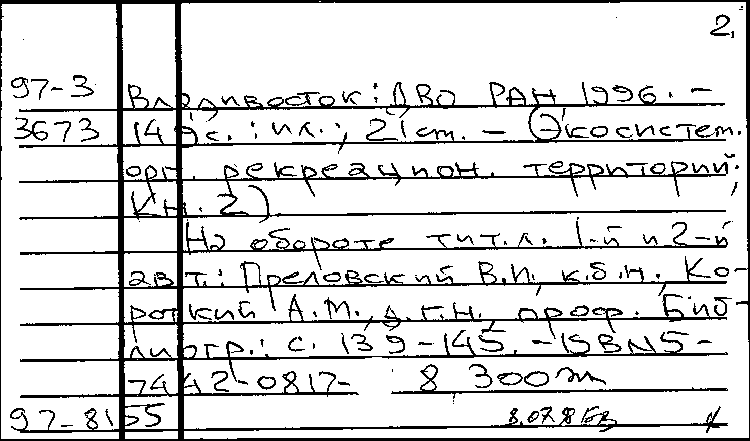 2.
97-3 Владивосток: ДВО РАН 1996. –
3673 149с.: ил.; 21 ст. – (Экосистем.
орг. рекреацион. территорий;
Кн. 2).
На обороте тит. л. 1-й и 2-й
авт.: Преловский В.И., к.б.н., Ко-
роткий А.М., д.г.н., проф. Биб-
лиогр.: с. 139-145. – ISBN 5-
7442-0817- 8 300
97-8155